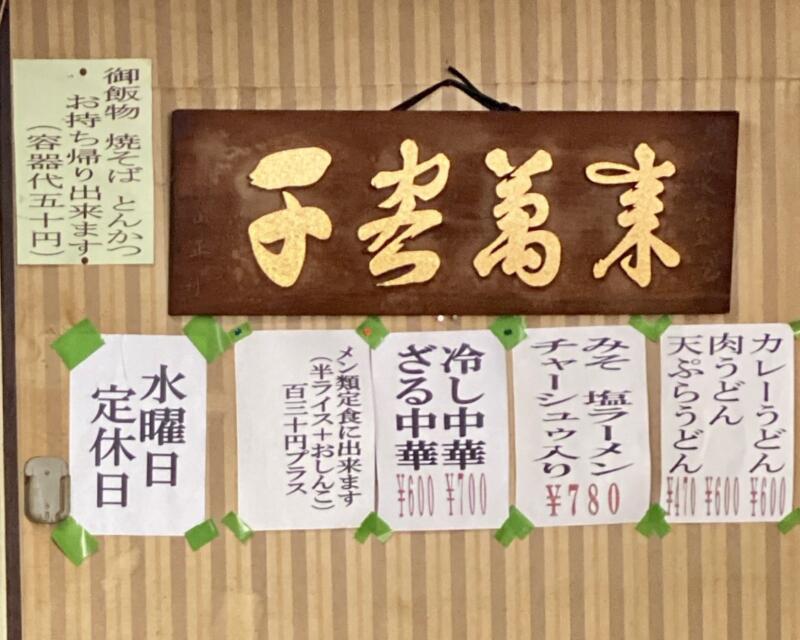 御飯物 焼そば とんかつ
お持ち帰り出来ます
(容器代五十円)
千客萬来
カレーうどん ¥600
肉うどん ¥600
天ぷらうどん ¥470
みそ 塩ラーメン
チャーシュウ入り
¥780
冷し中華 ¥700
ざる中華 ¥600
メン類定食に出来ます
(半ライス+おしんこ)
百三十円プラス
水曜日
定休日